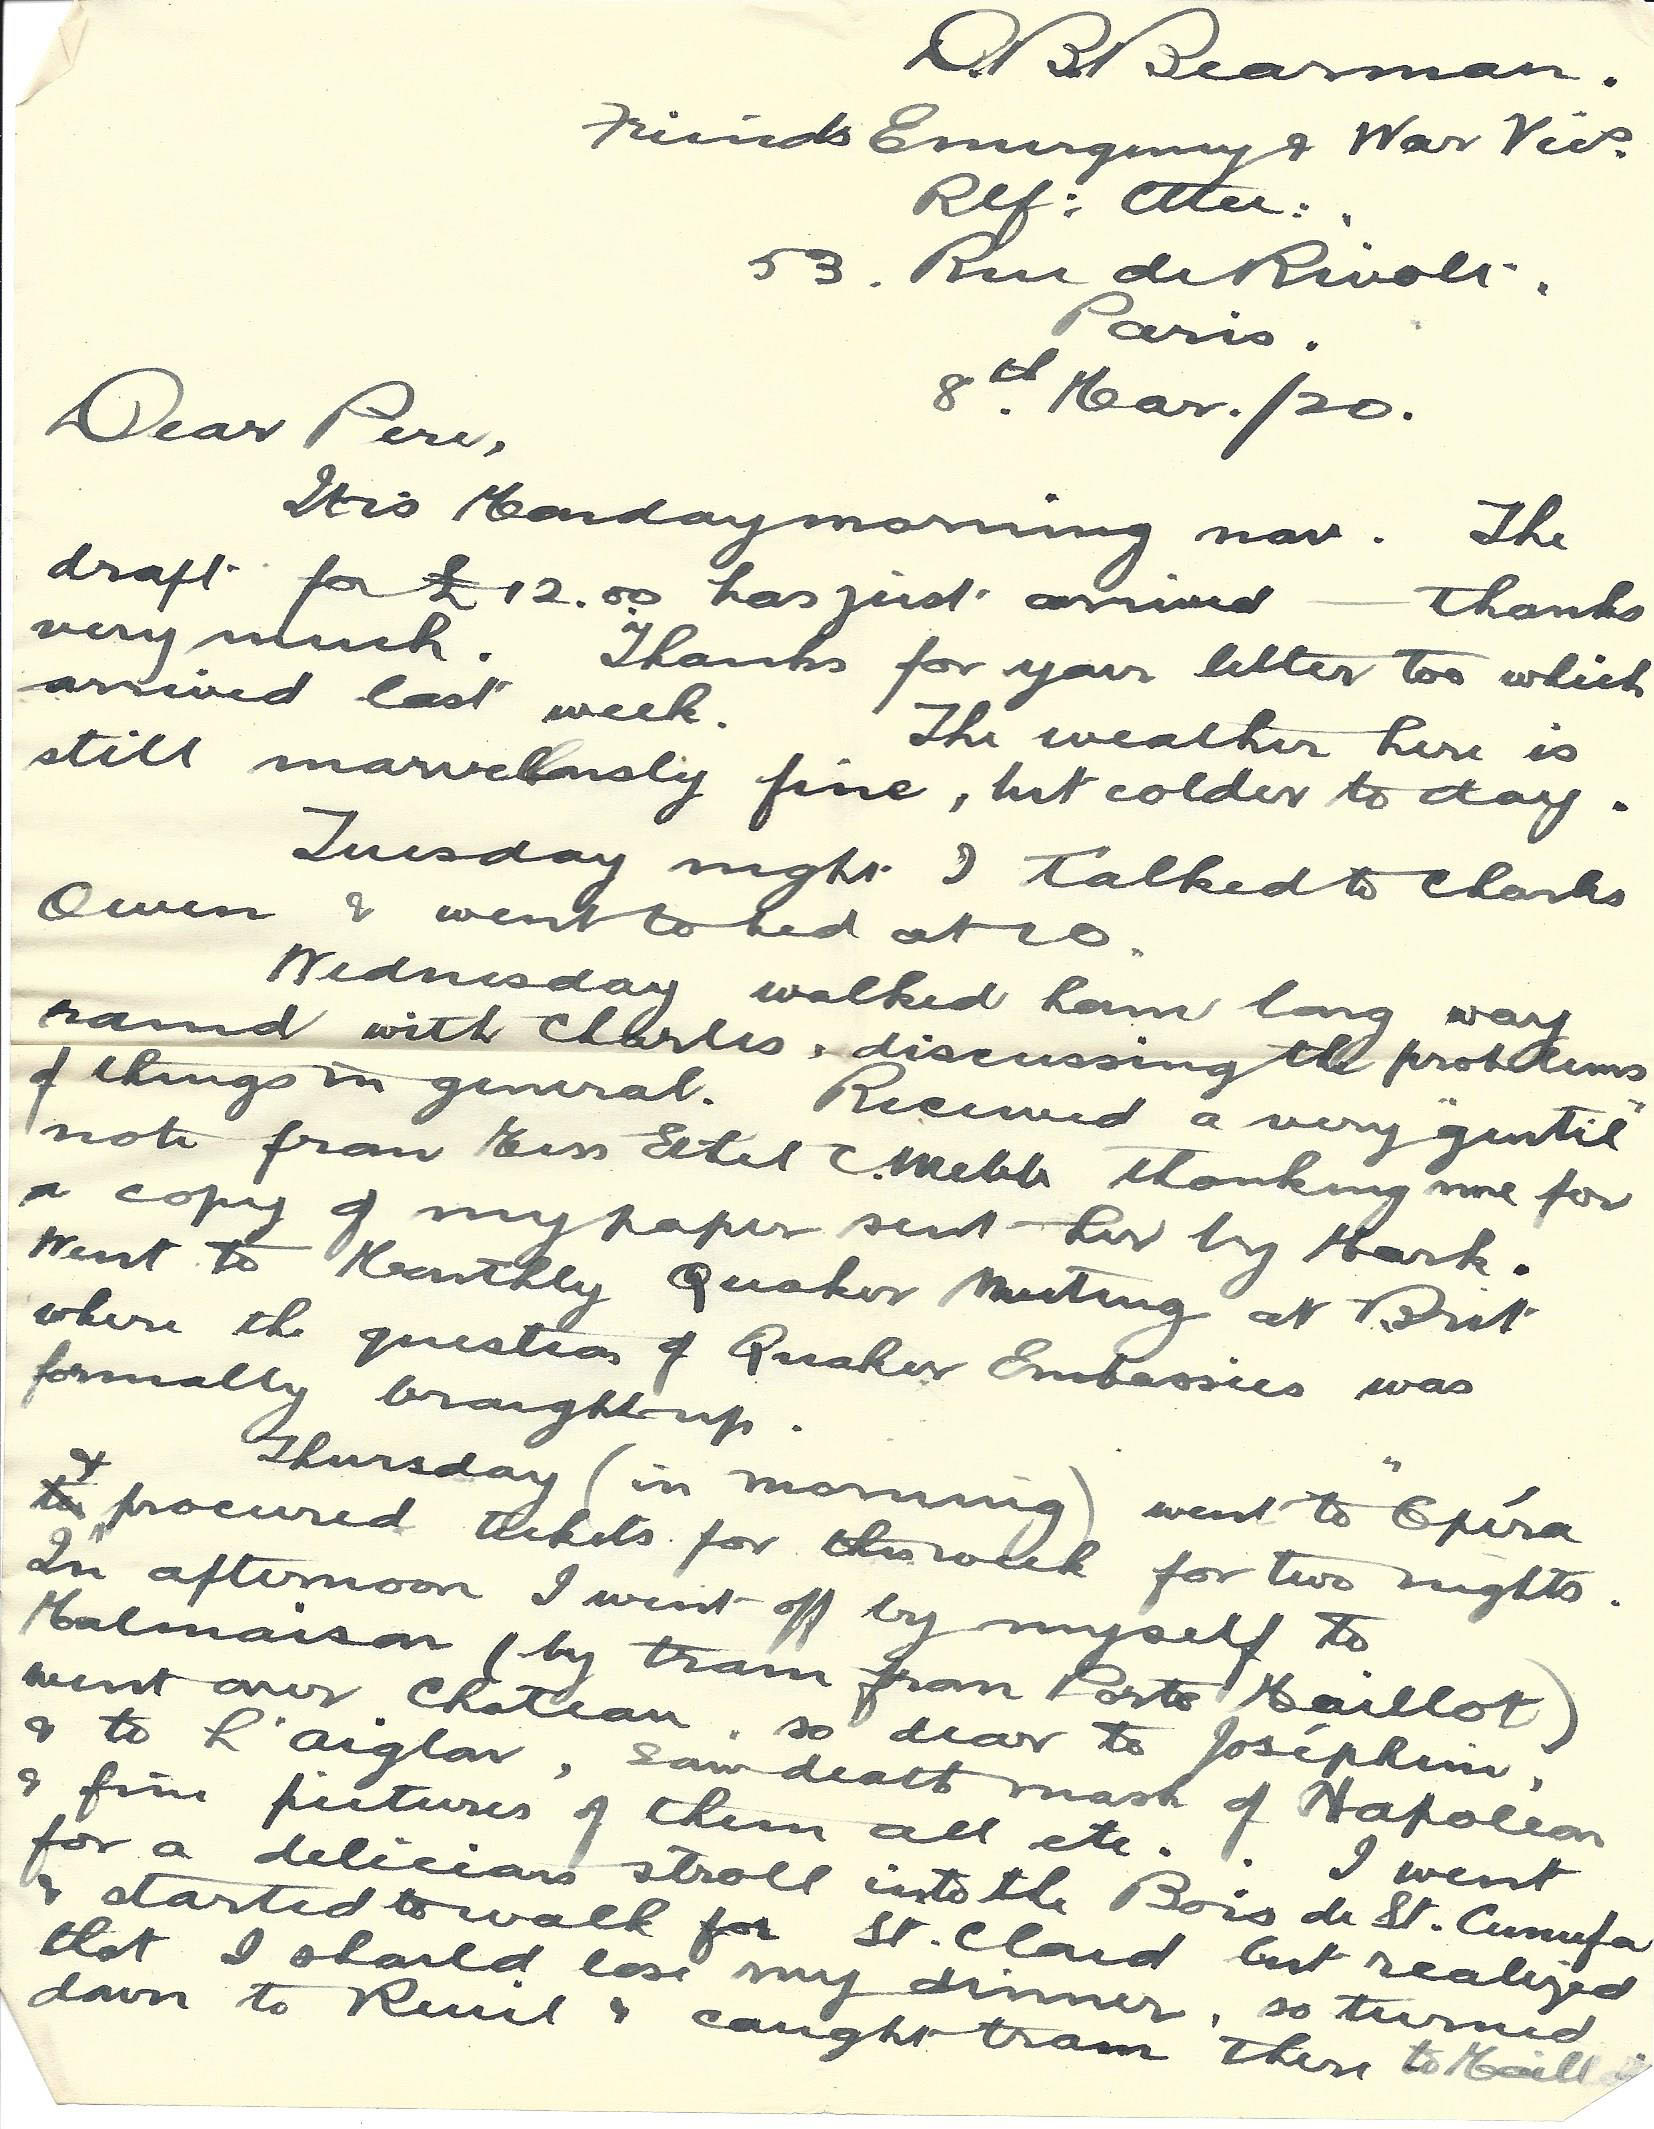 D. B. Bearman.
Friends Emergency & War Vic's.
Rlf: Cttee:.
53. Rue de Rivoli.
Paris.
8th. Mar./20.
Dear Pere,
It is Monday morning now. The
draft for £12.00 has just arrived — thanks
very much. Thanks for your letter too which
arrived last week. The weather here is
still marvellously fine, but colder to day.
Tuesday night I talked to Charles
Owen & went to bed at 10.
Wednesday walked home long way
round with Charles, discussing the problems
of things in general. Received a very "gentil"
note from Miss Ethel C. Webb thanking me for
a copy of my paper sent her by Mark.
Went to Monthly Quaker Meeting at Brit
where the question of Quaker Embassies was
formally brought up.
Thursday (in morning) went to "Opéra"
& procured tickets for this week for two nights.
In afternoon I went off by myself to
Malmaison (by tram from Porte Maillot)
went over Chateau, so dear to Joséphine,
& to L'Aiglon, saw death mask of Napoleon
& fine pictures of them all etc. I went
for a delicious stroll into the Bois de St. Cucufa
& started to walk for St. Cloud but realized
that I should lose my dinner, so turned
down to Rueil & caught tram there to Maillot